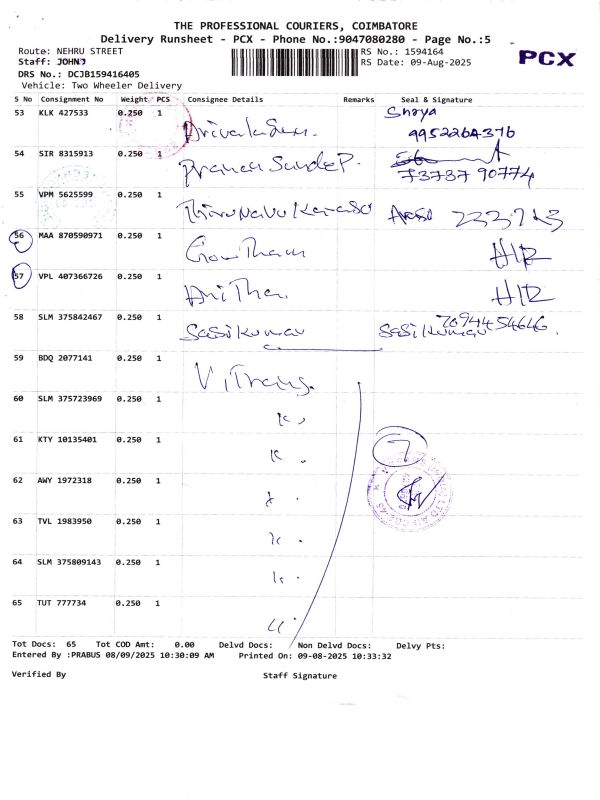 THE PROFESSIONAL COURIERS, COIMBATORE
Delivery Runsheet - PCX - Phone No.:9047080280 - Page No.:5
Route: NEHRU STREET
RS No.: 1594164
PCX
Staff: JOHN
RS Date: 09-Aug-2025
DRS No.: DCJB159416405
Vehicle: Two Wheeler Delivery
S No Consignment No Weight PCS Consignee Details Remarks Seal & Signature
53 KLK 427533 0.250 1
9952264376
54 SIR 8315913 0.250 1 Pranav Sandep.
73787 90774
55 VPM 5625599 0.250 1 Thirunavukaraso
56 MAA 870590971 0.250 1 Gowtham H/R
57 VPL 407366726 0.250 1 Anitha H/R
58 SLM 375842467 0.250 1 Sasikumar Sasikumar
7094454646
59 BDQ 2077141 0.250 1 V iTrans.
60 SLM 375723969 0.250 1
61 KTY 10135401 0.250 1 7
62 AWY 1972318 0.250 1
63 TVL 1983950 0.250 1
64 SLM 375809143 0.250 1
65 TUT 777734 0.250 1
Tot Docs: 65 Tot COD Amt: 0.00 Delvd Docs: Non Delvd Docs: Delvy Pts:
Entered By :PRABUS 08/09/2025 10:30:09 AM Printed On: 09-08-2025 10:33:32
Verified By Staff Signature